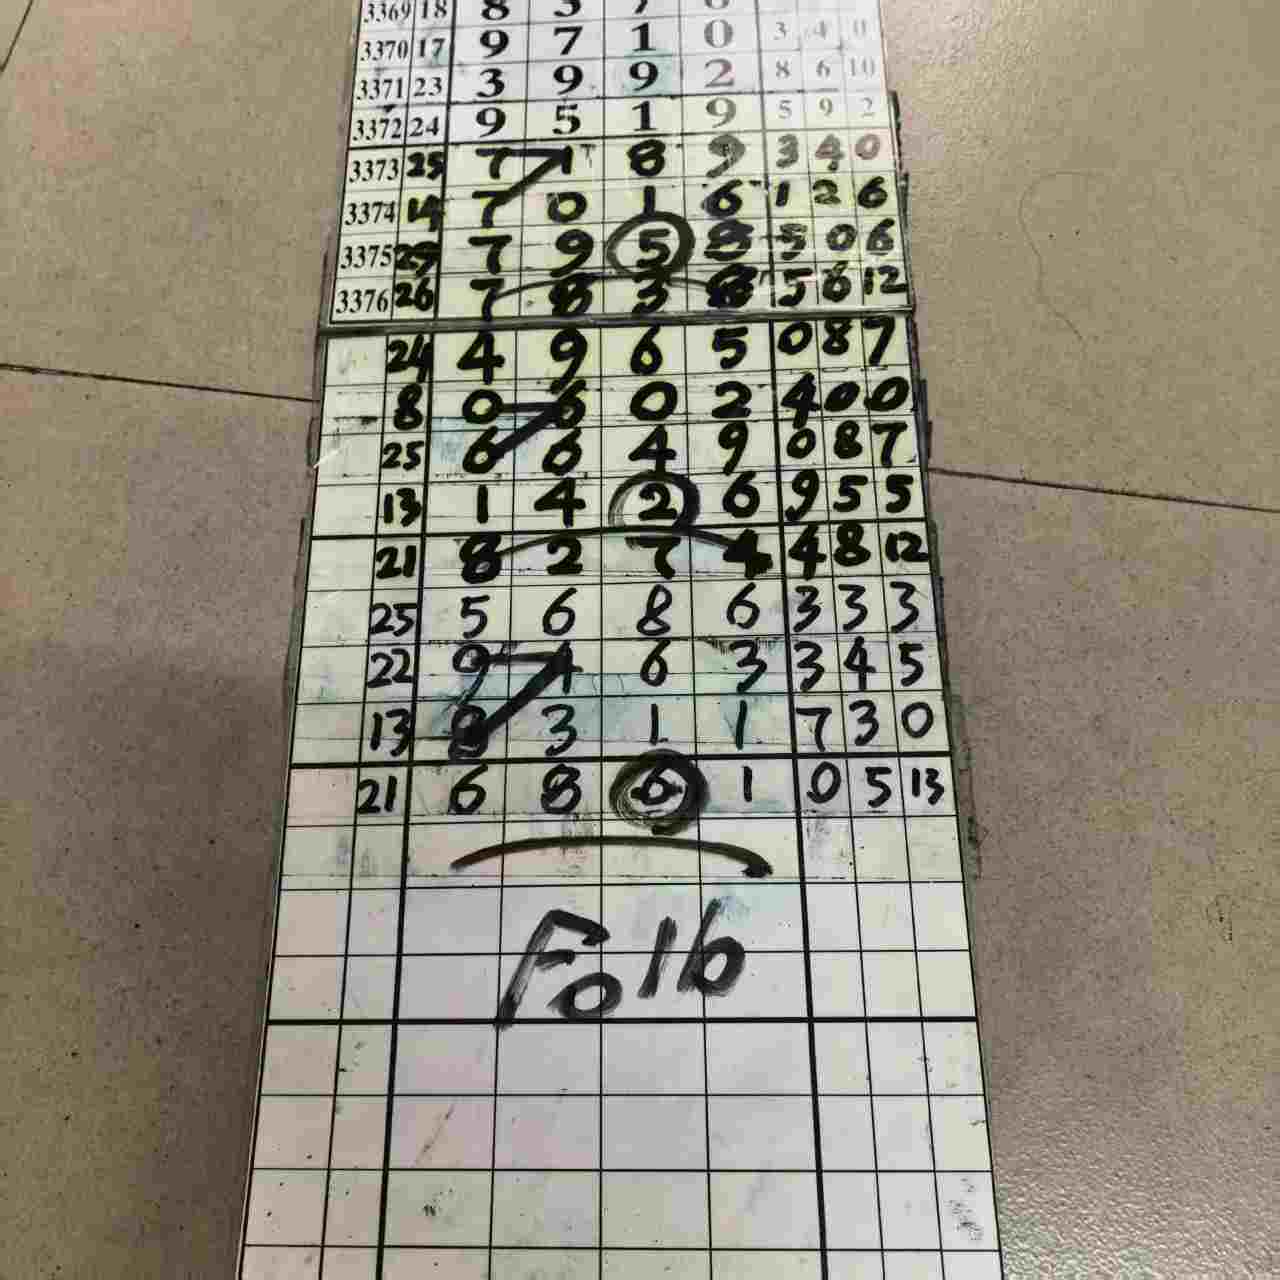 3369 18 8 3 7
3370 17 9 7 1 0 3 4 0
3371 23 3 9 9 2 8 6 10
3372 24 9 5 1 9 5 9 2
3373 25 7 1 8 9 3 4 0
3374 14 7 0 1 6 1 2 6
3375 29 7 9 5 8 5 0 6
3376 26 7 8 3 8 5 6 12
24 4 9 6 5 0 8 7
8 0 6 0 2 4 0 0
25 6 6 4 9 0 8 7
13 1 4 2 6 9 5 5
21 8 2 7 4 4 8 12
25 5 6 8 6 3 3 3
22 9 4 6 3 3 4 5
13 8 3 1 1 7 3 0
21 6 8 6 1 0 5 13
Fo16